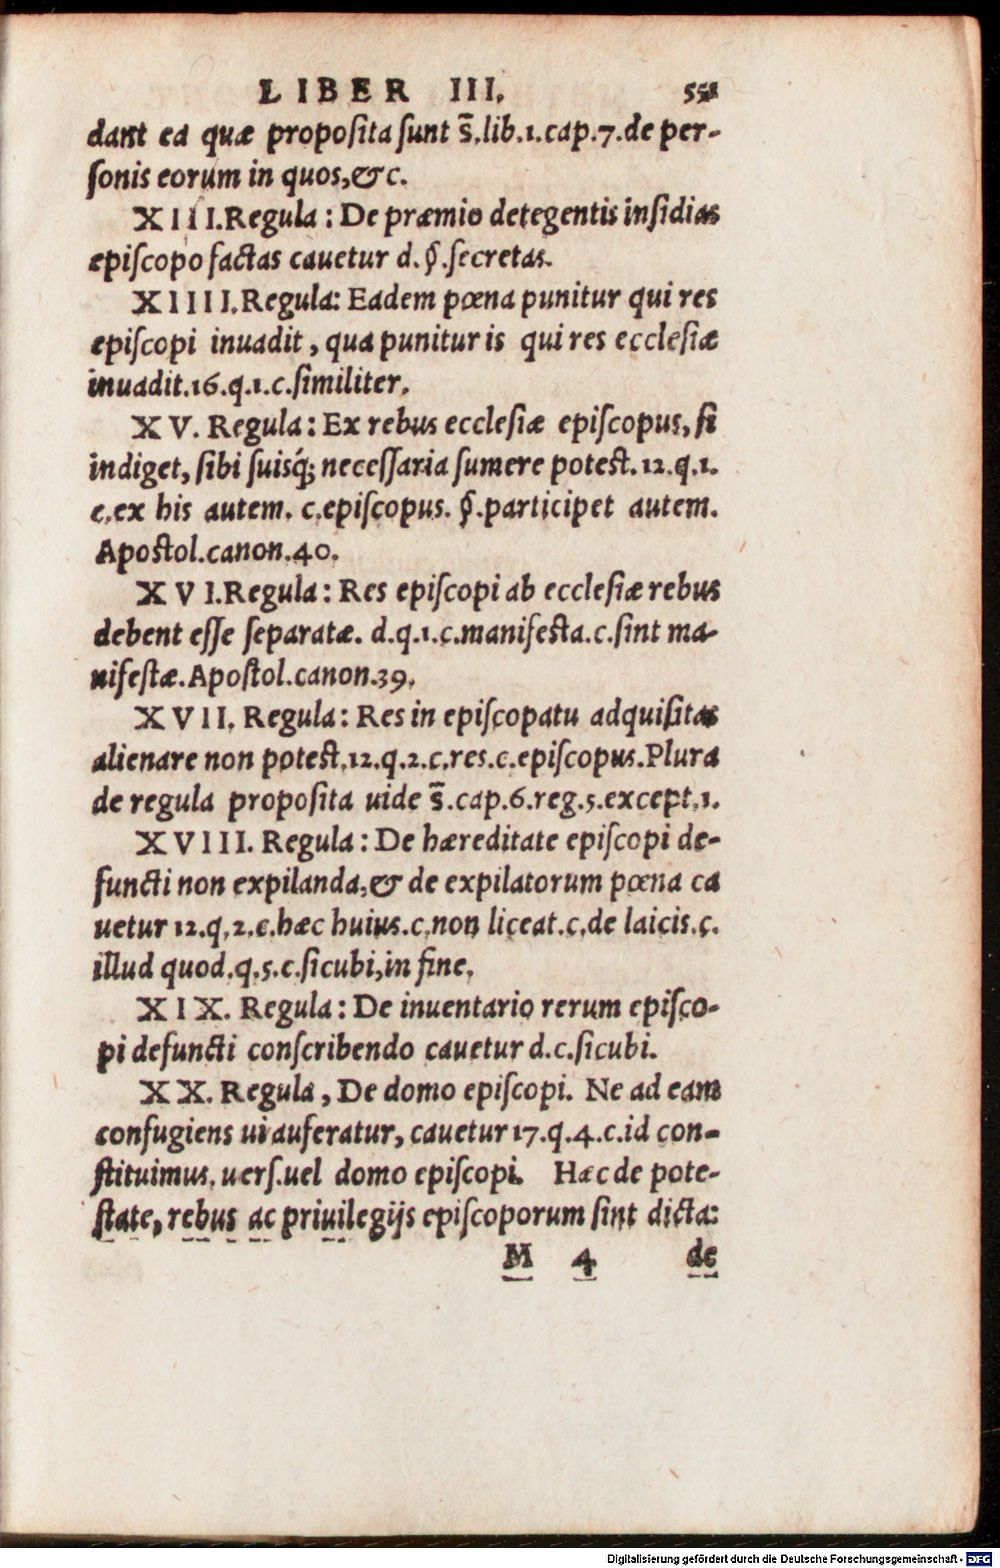 LIBER III. 551
dant ea quæ proposita sunt s̄.lib.1.cap.7.de per-
sonis eorum in quos,&c.
XIII.Regula: De præmio detegentis insidias
episcopo factas cauetur d.§.secretas.
XIIII.Regula: Eadem pœna punitur qui res
episcopi inuadit, qua punitur is qui res ecclesiæ
inuadit.16.q.1.c.similiter.
XV. Regula: Ex rebus ecclesiæ episcopus, si
indiget, sibi suisq́; necessaria sumere potest.12.q.1.
c.ex his autem. c.episcopus. §.participet autem.
Apostol.canon.40.
XVI.Regula: Res episcopi ab ecclesiæ rebus
debent esse separatæ. d.q.1.c.manifesta.c.sint ma-
nifestæ.Apostol.canon.39.
XVII. Regula: Res in episcopatu adquisitas
alienare non potest.12.q.2.c.res.c.episcopus.Plura
de regula proposita uide s̄.cap.6.reg.5.except.1.
XVIII. Regula: De hæreditate episcopi de-
functi non expilanda,& de expilatorum pœna ca
uetur 12.q.2.c.hæc huius.c.non liceat.c.de laicis.c.
illud quod.q.5.c.sicubi,in fine.
XIX. Regula: De inuentario rerum episco-
pi defuncti conscribendo cauetur d.c.sicubi.
XX. Regula, De domo episcopi. Ne ad eam
confugiens ui auferatur, cauetur 17.q.4.c.id con-
stituimus, uers.uel domo episcopi. Hæc de pote-
state, rebus ac priuilegijs episcoporum sint dicta:
M 4 de
Digitalisierung gefördert durch die Deutsche Forschungsgemeinschaft - DFG